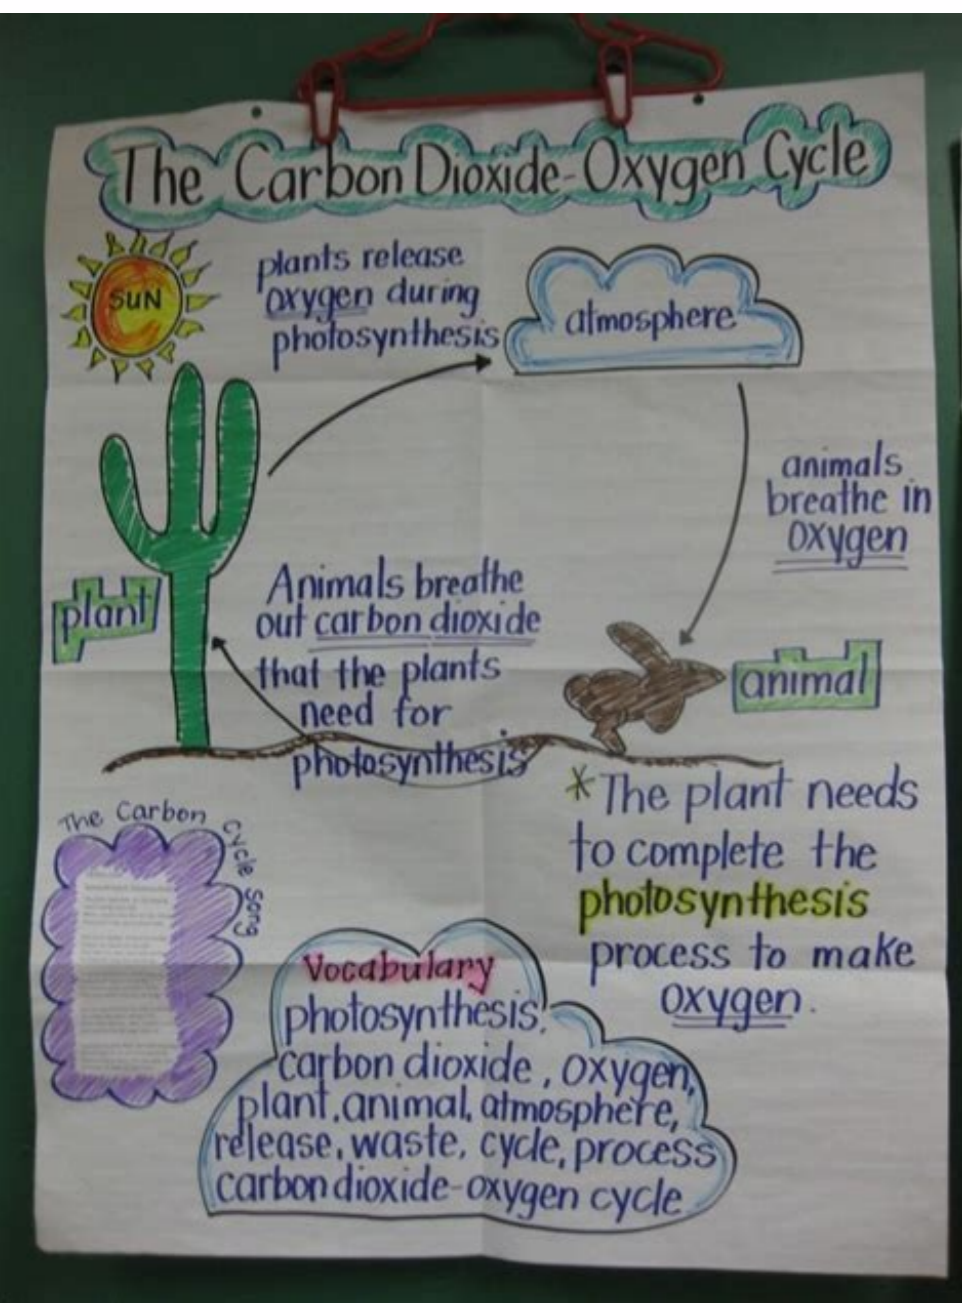 The Carbon Dioxide-Oxygen Cycle
SUN
plants release
oxygen during
photosynthesis
atmosphere
animals
breathe in
oxygen
plant
Animals breathe
out carbon dioxide
that the plants
need for
photosynthesis
animal
*The plant needs
to complete the
photosynthesis
process to make
oxygen.
The Carbon Cycle Song
Vocabulary
photosynthesis,
carbon dioxide, oxygen,
plant, animal, atmosphere,
release, waste, cycle, process
carbon dioxide-oxygen cycle